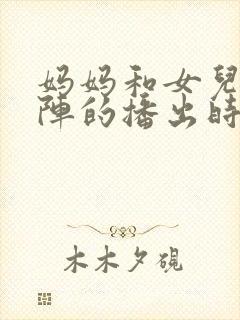 妈妈和女兒
陣的播出時
木木夕硯